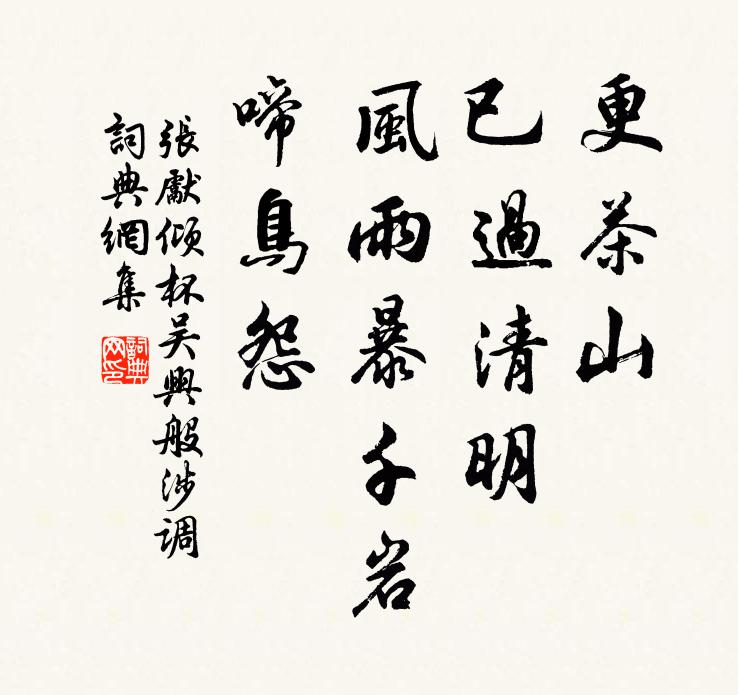 更茶山
已過清明
風雨暴千岩
啼鳥怨
張獻傾杯吴興般涉调
詞典網集
詞典網印